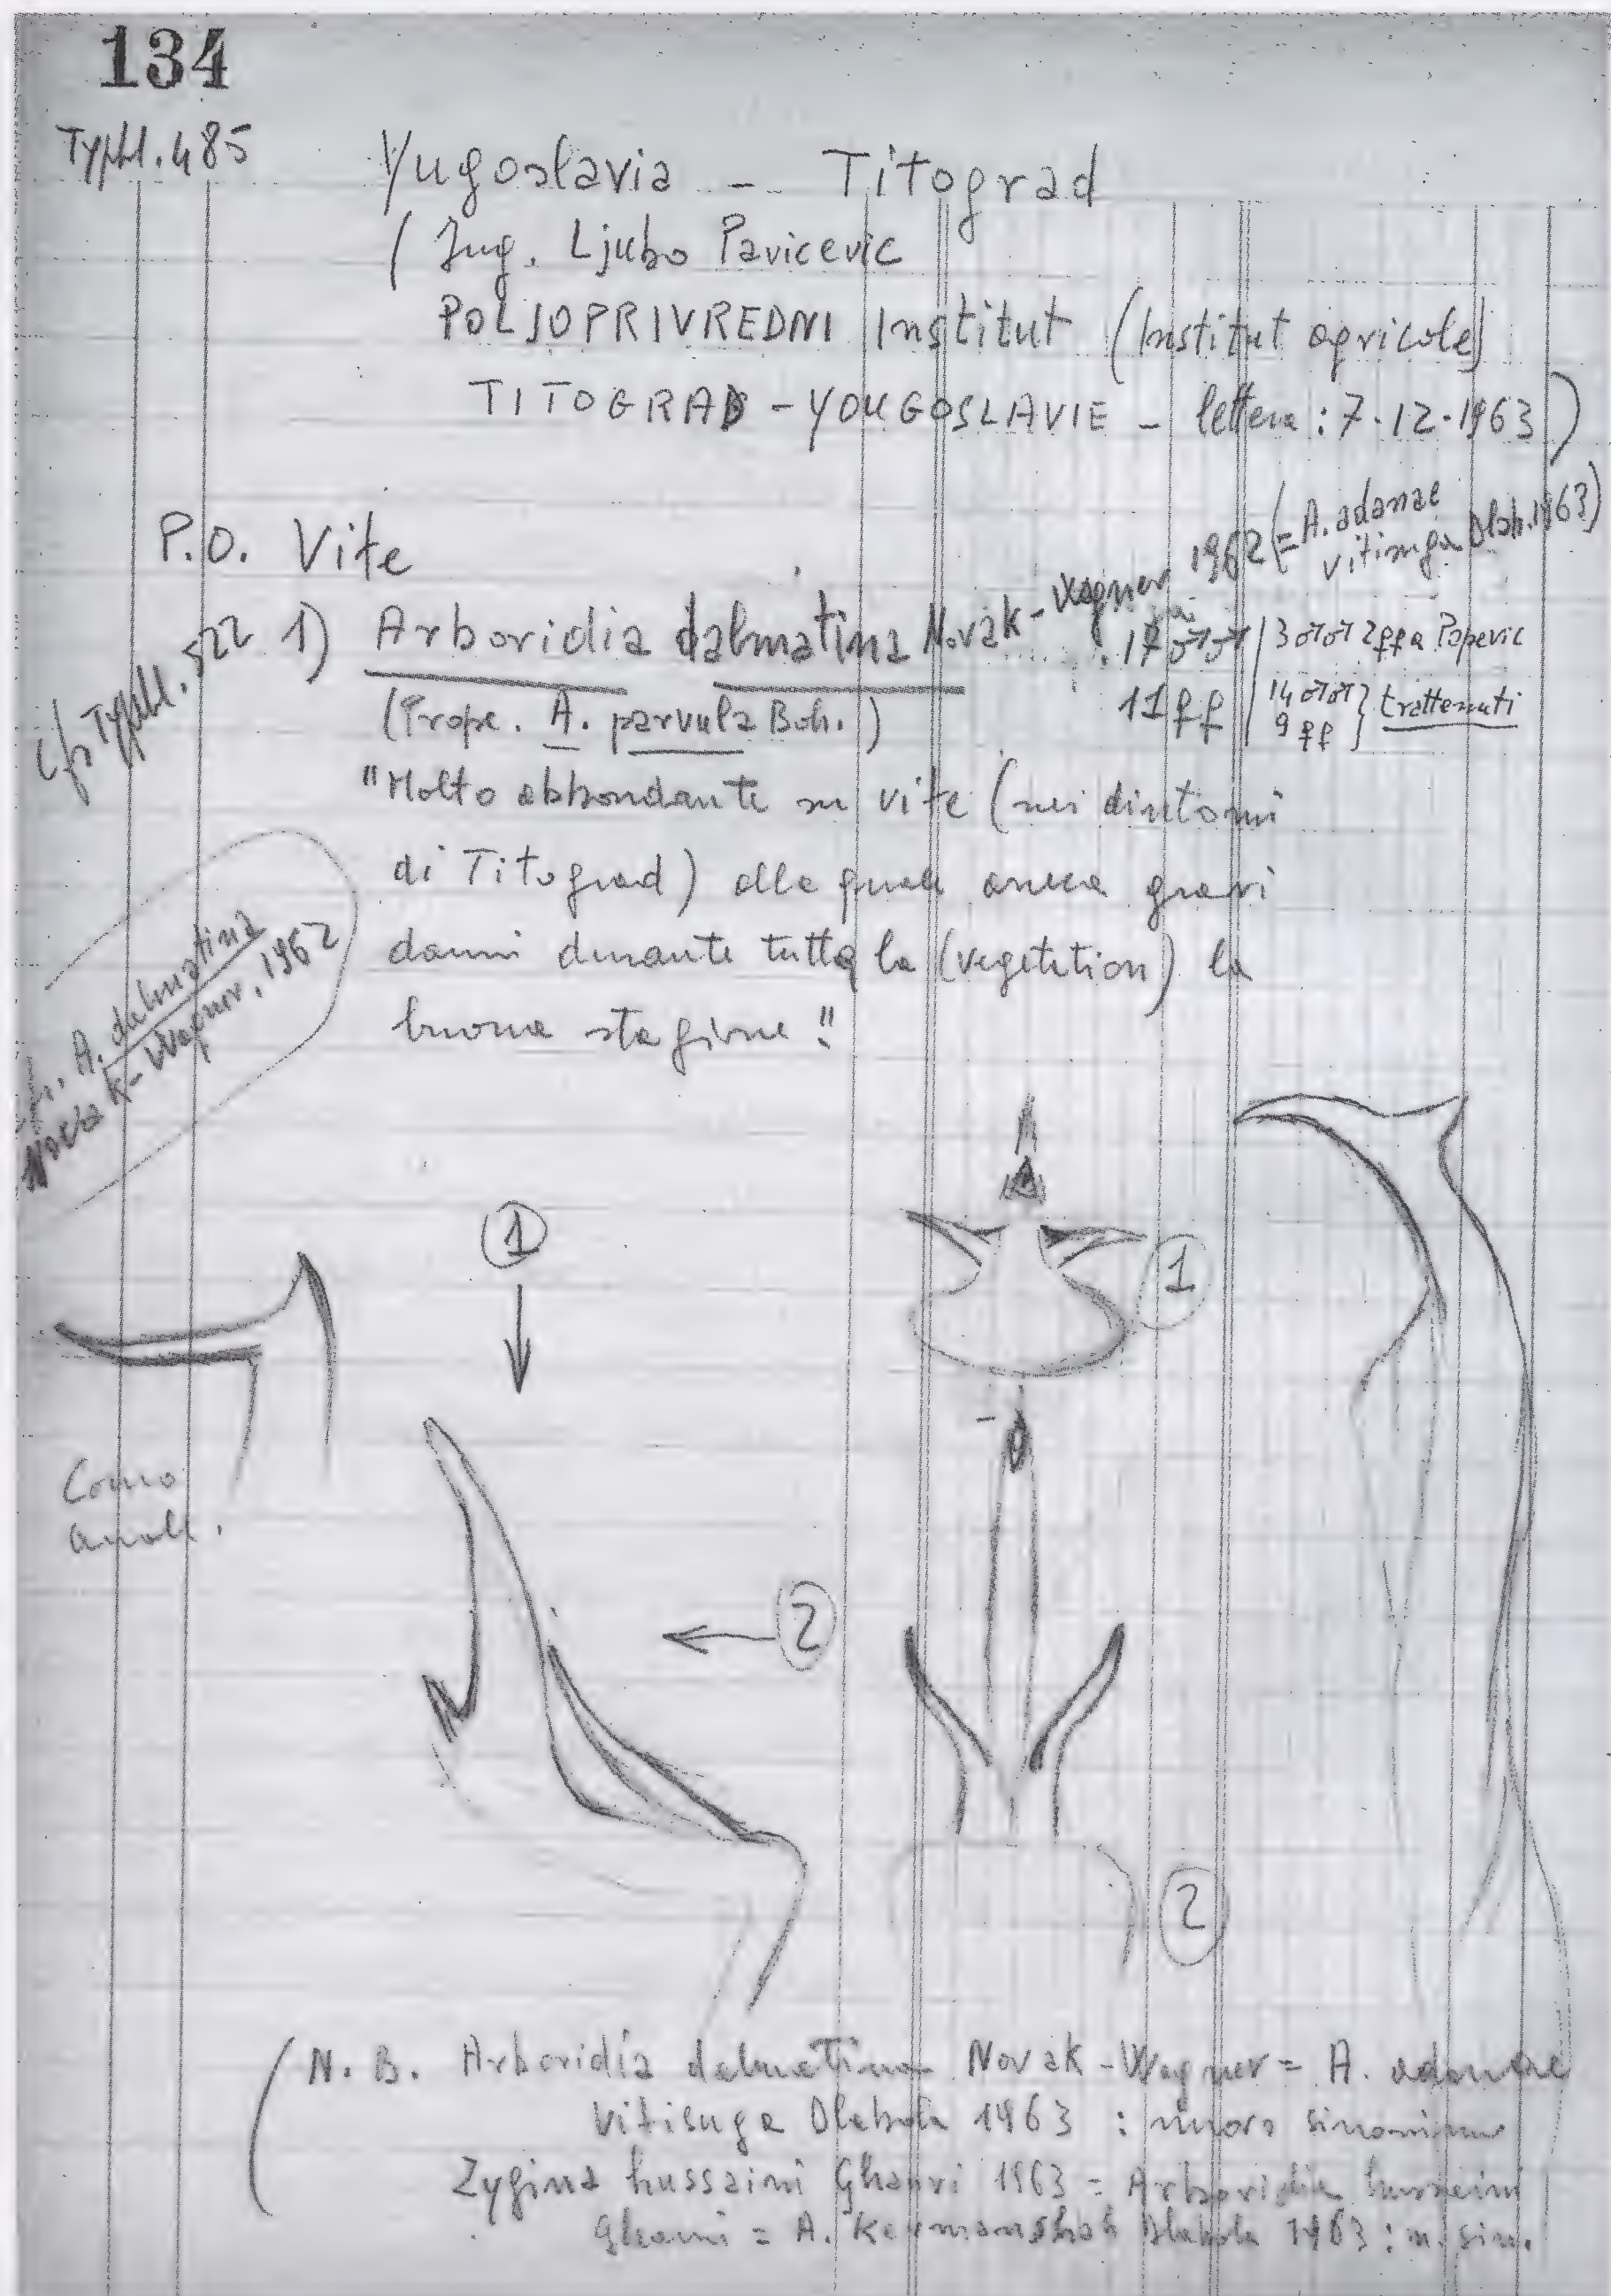 134
Typhl. 485
Yugoslavia - Titograd
( Ing. Ljubo Pavicevic
POLJOPRIVREDNI Institut (Institut agricole)
TITOGRAD - YOUGOSLAVIE - lettera : 7.12.1963 )
P.O. Vite
1) Arboridia dalmatina Novak-Wagner 1962 (= A. adanae
vitisuga Dlab. 1963)
cfr Typhl. 522
17 ♂♂ | 3 ♂♂ 2 ♀♀ a Papevic
(Prope. A. parvula Boh.)
11 ♀♀ | 14 ♂♂ } trattenuti
9 ♀♀
"Molto abbondante su vite (nei dintorni
di Titograd) alla quale arreca gravi
danni durante tutta la (vegetation) la
buona stagione"
cfr. A. dalmatina
Novak-Wagner, 1962
1
1
Corno
anale.
2
2
( N. B. Arboridia dalmatina Novak-Wagner = A. adanae
vitisuga Dlabola 1963 : nuovo sinonimo
Zygina hussaini Ghauri 1963 = Arboridia hussaini
Ghauri = A. Kermanshah Dlabola 1963 : n. sin.